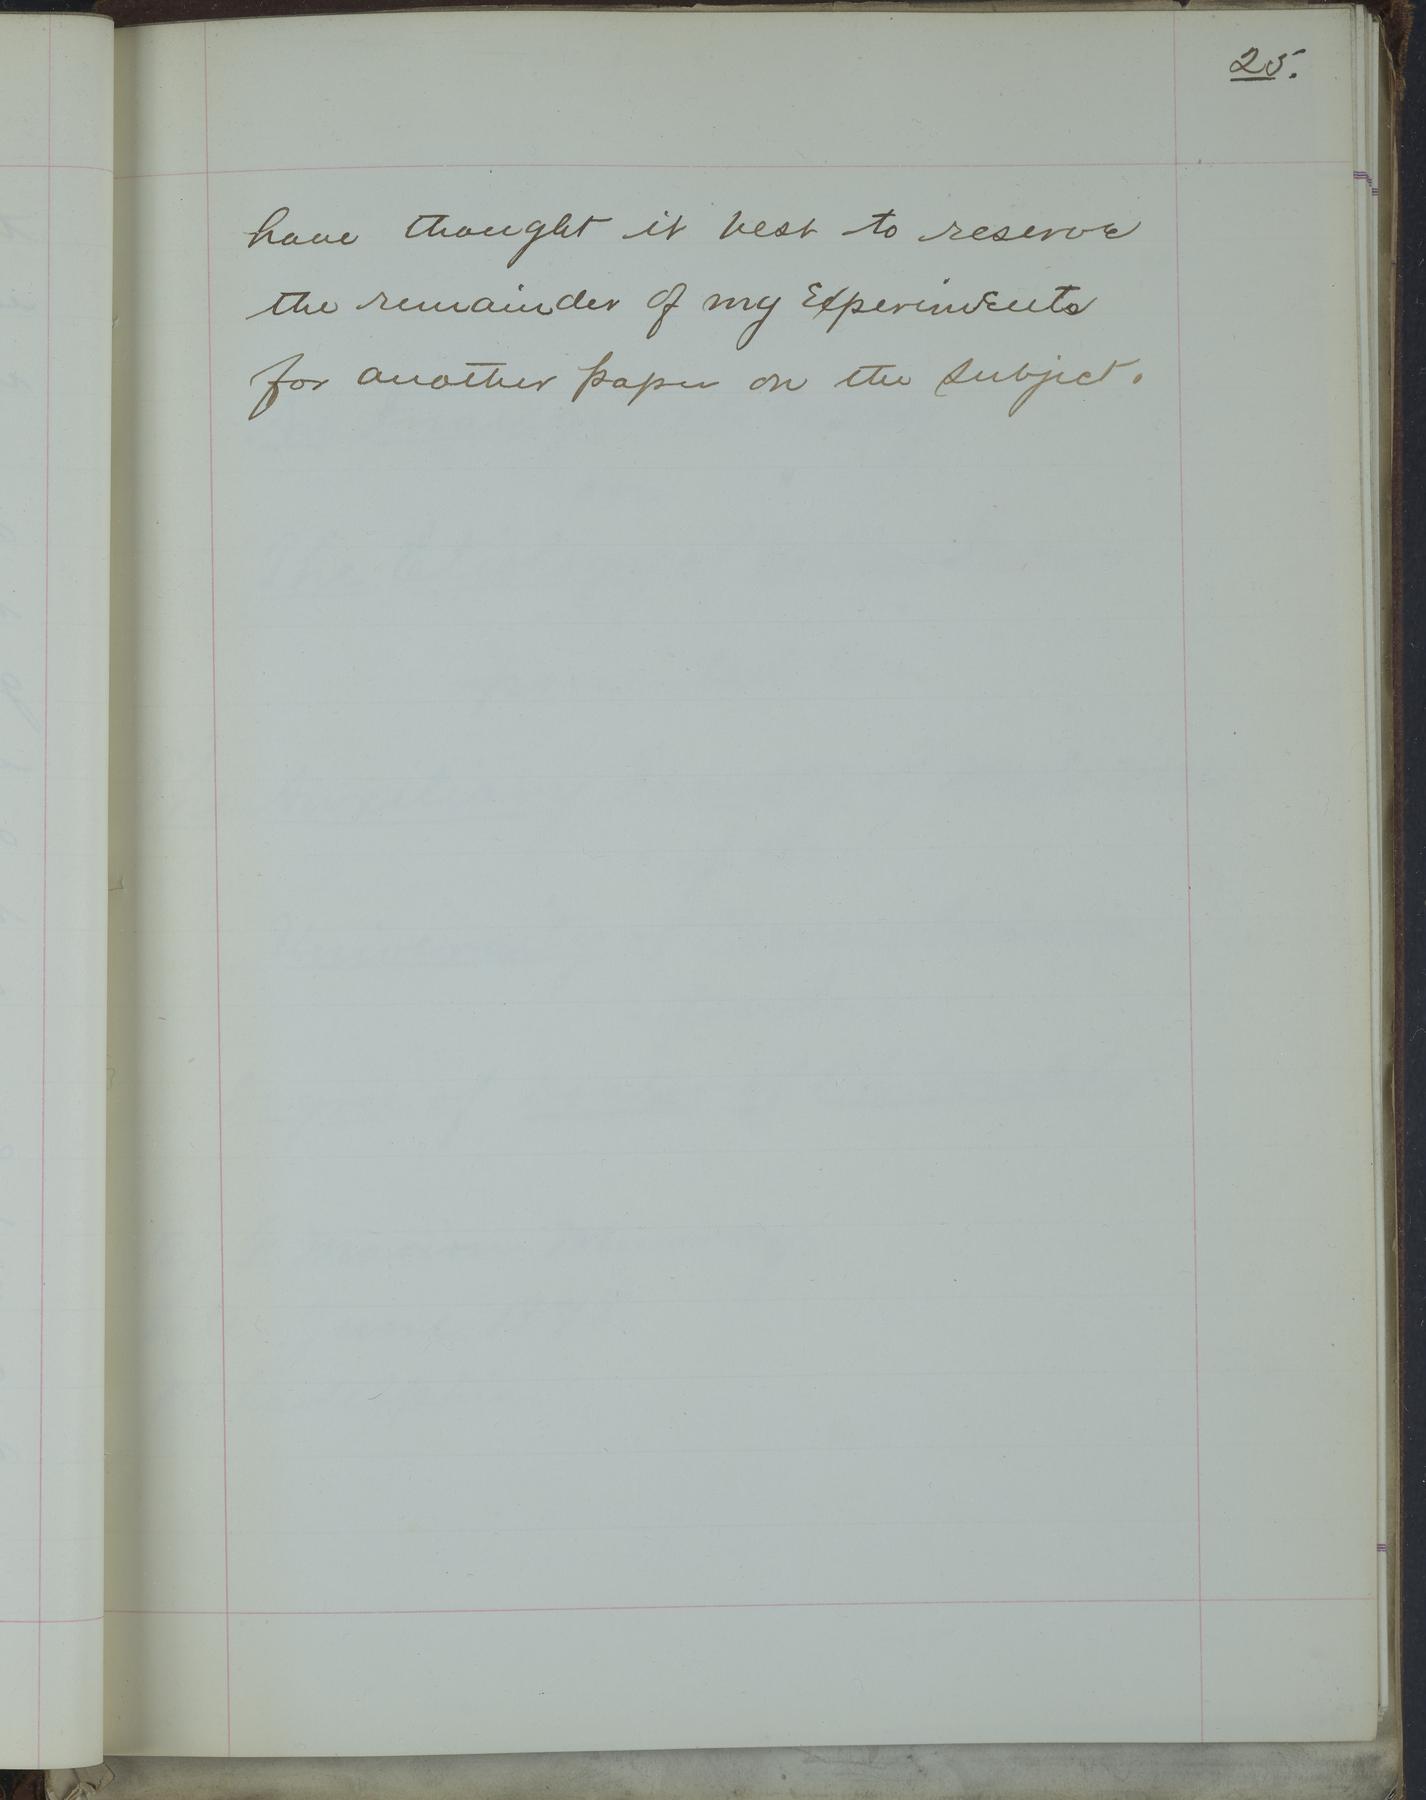 25.
have thought it best to reserve
the remainder of my Experiments
for another paper on the subject.